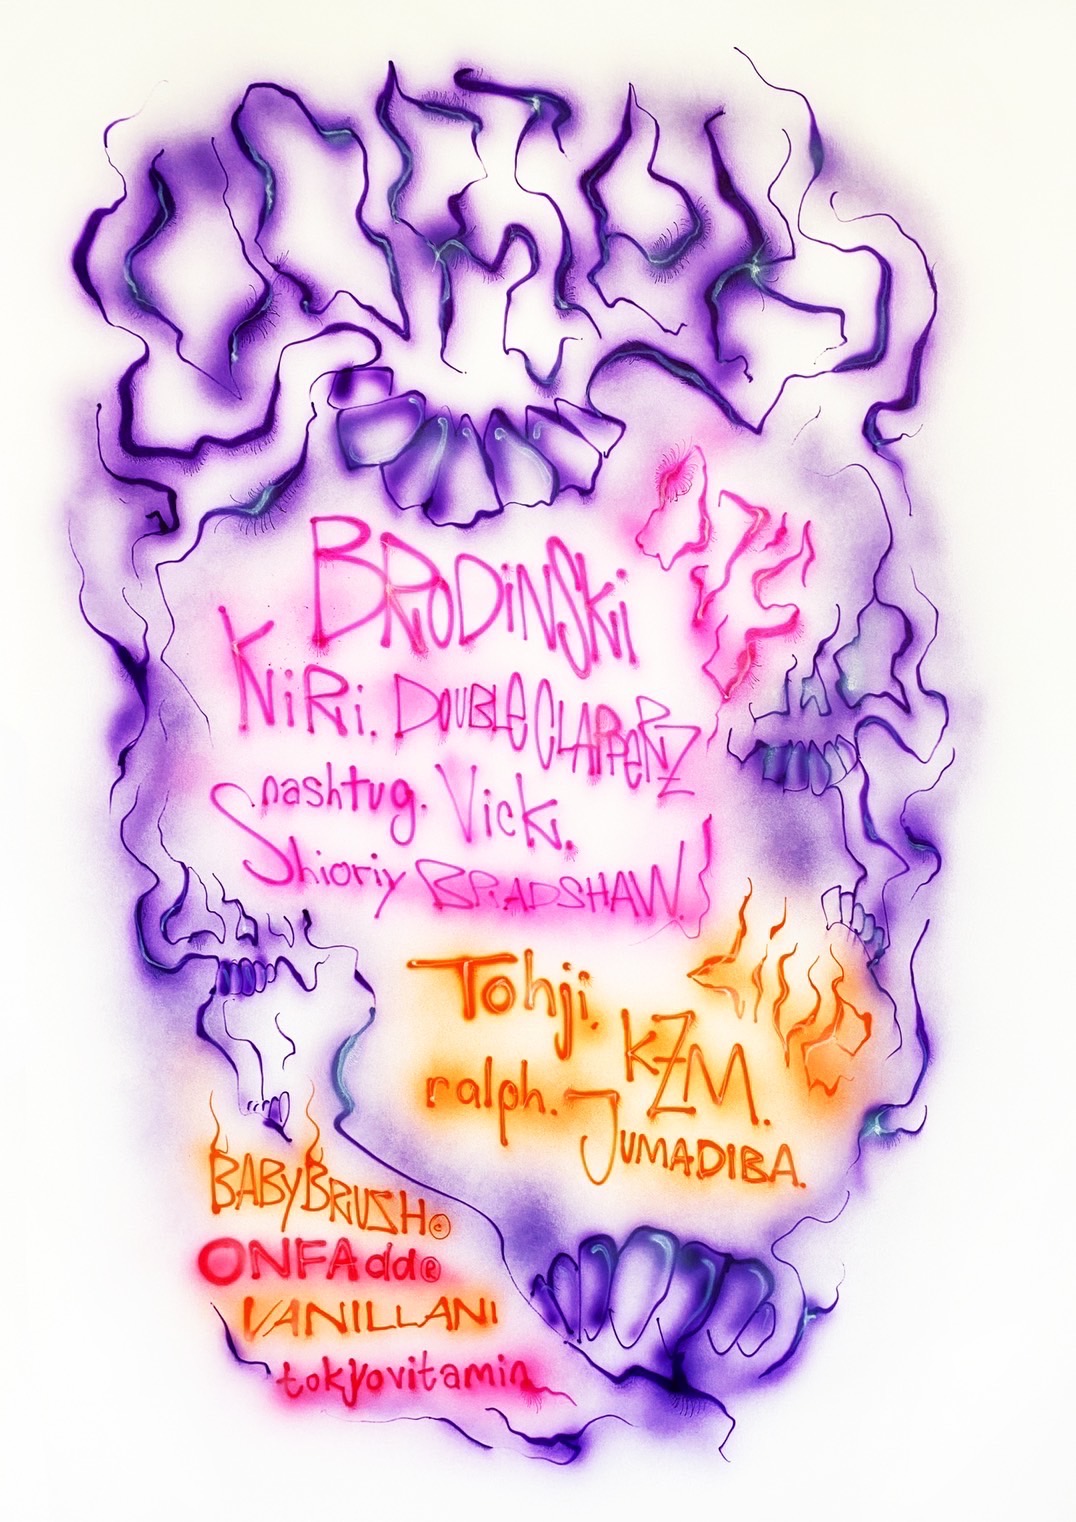 BRODiNSKii
KiiRi. DOUBLE CLAPPERZ
nashtug. Vick.
Shioriy BRADSHAW.
Tohji.
KZM.
ralph.
JUMADIBA.
BABYBRUSH©
ONFAdd®
VANILLANI
tokyovitamin